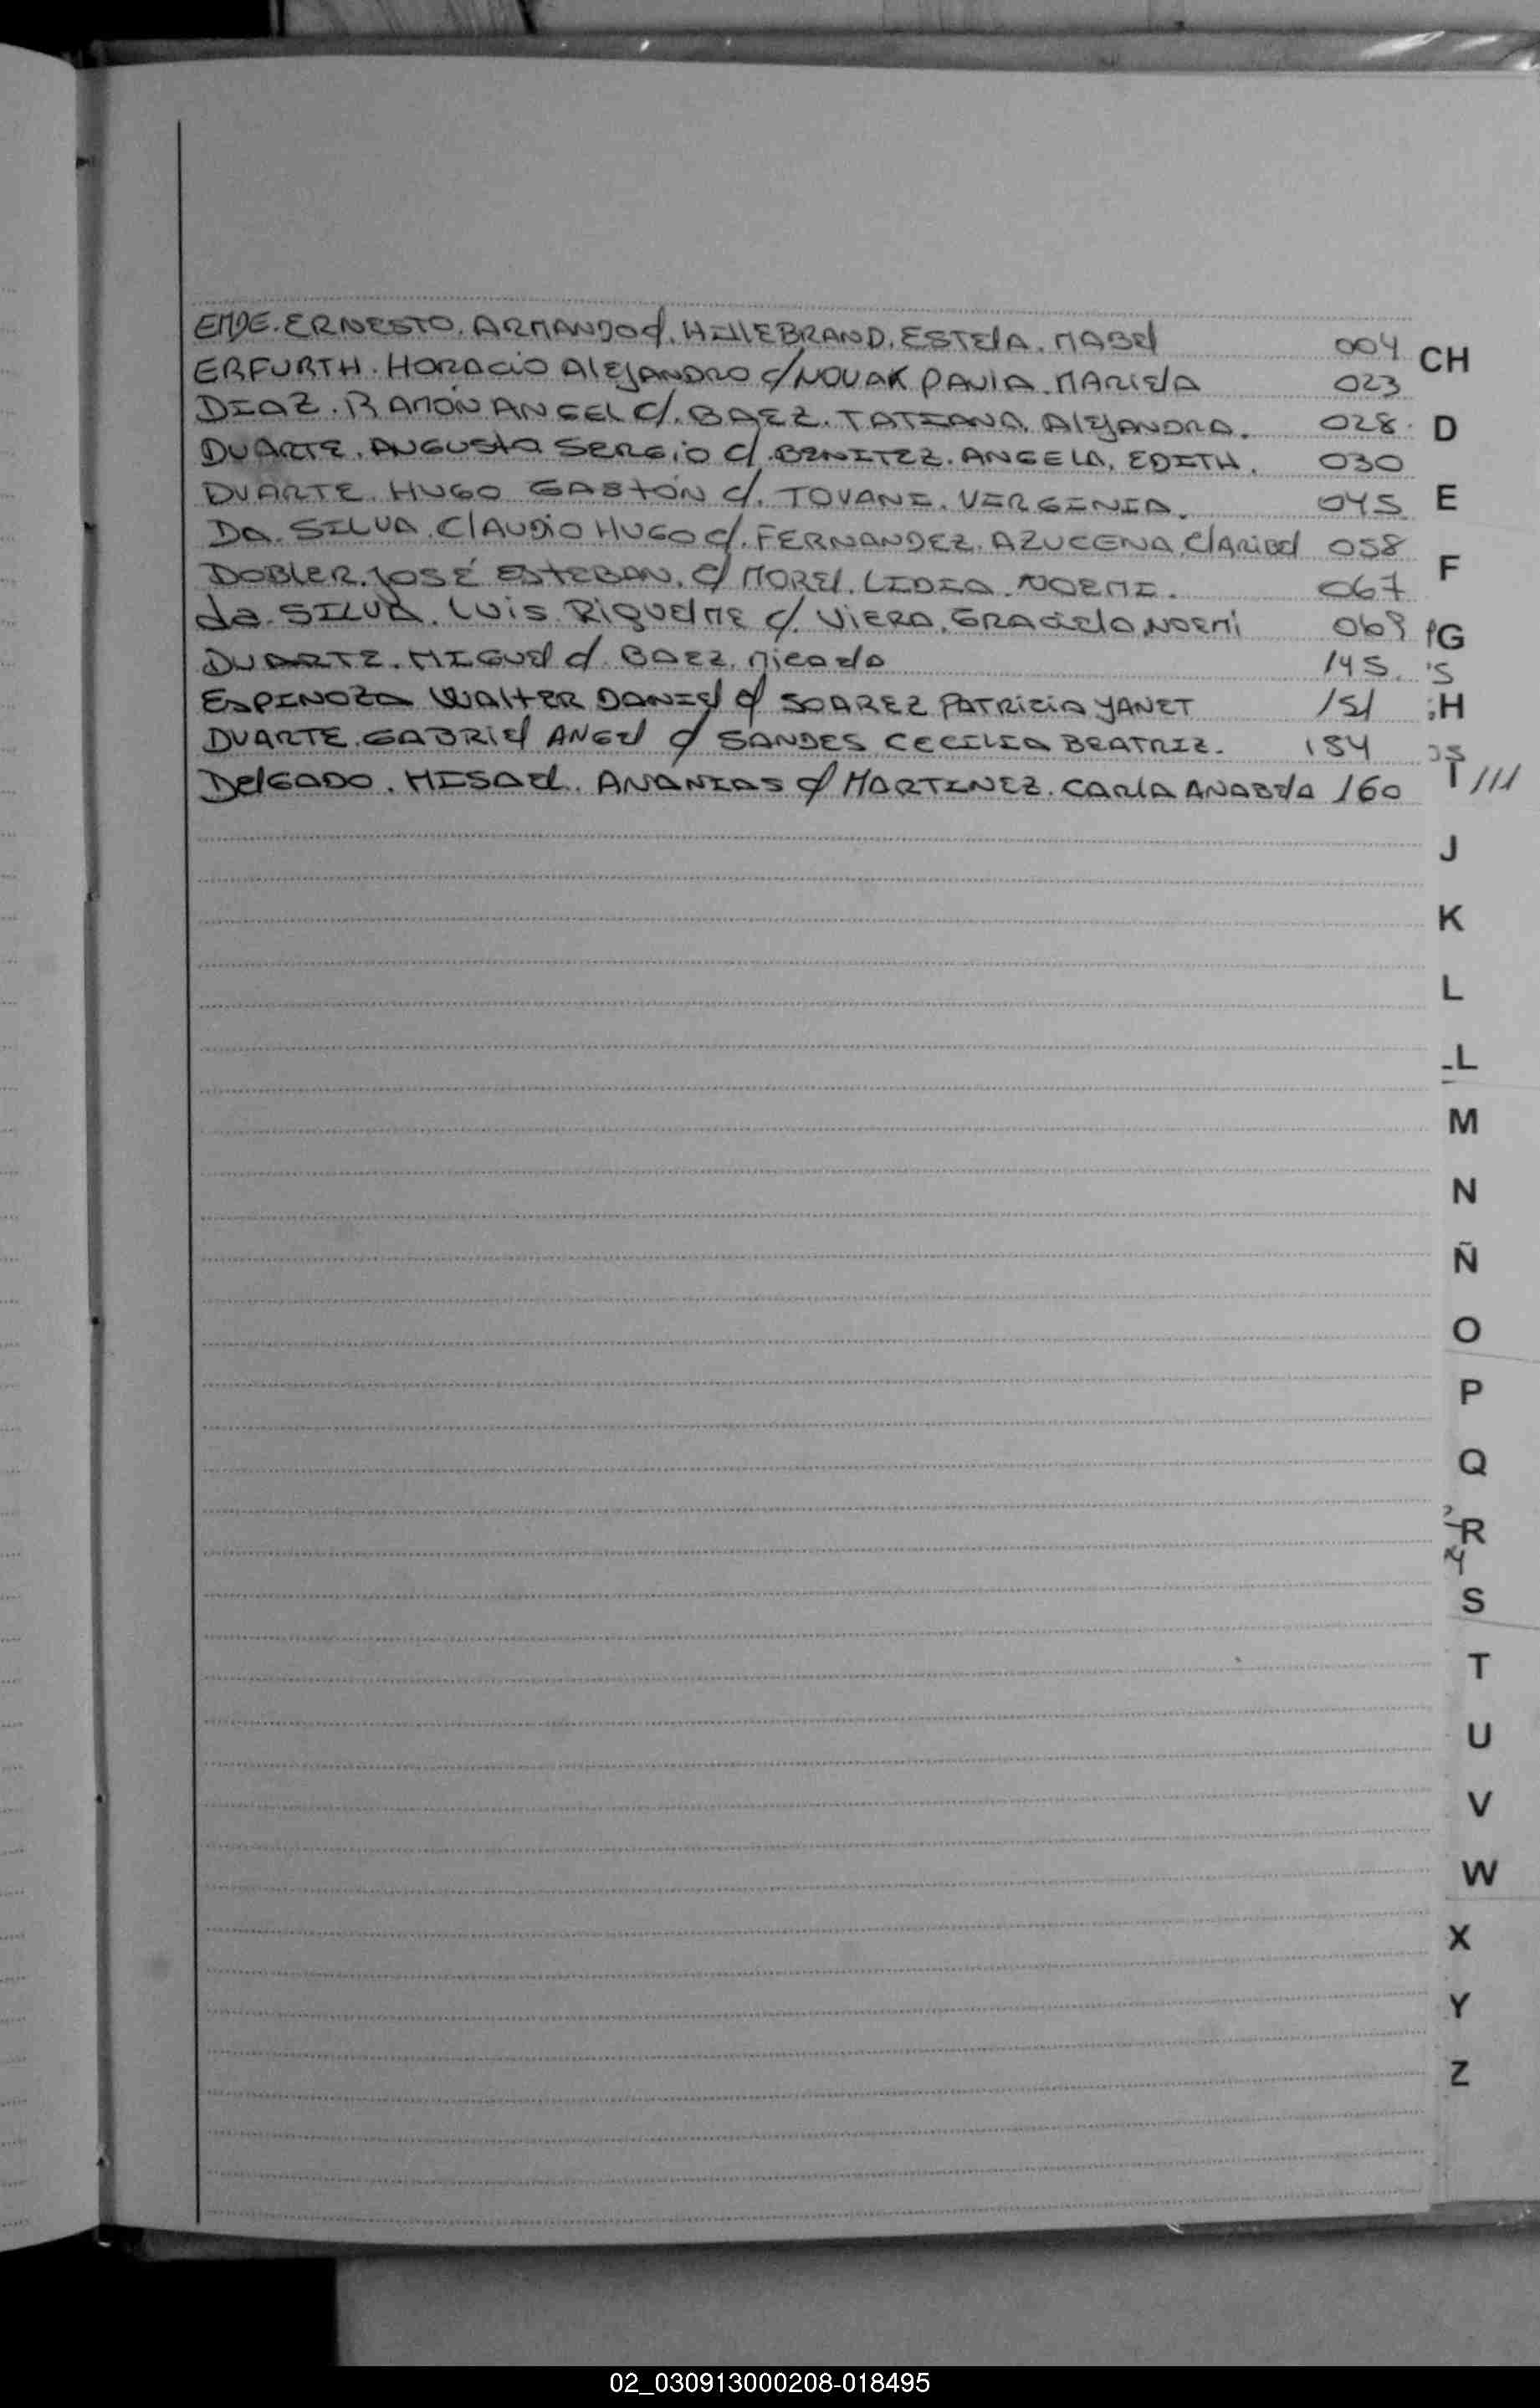 EMDE. ERNESTO. ARMANDO c/. HILLEBRAND. ESTElA. MABEl 004
ERFURTH. HORACIO AlEJANDRO c/ NOVAK PAVIA. MARIElA 023
DIAZ. RAMÓN ANGEL c/. BAEZ. TATIANA. AlEJANDRA. 028.
DUARTE. AUGUSTO SERGIO c/. BENITEZ. ANGELA. EDITH. 030
DUARTE. HUGO GASTÓN c/. TOVANI. VERGINIA. 045
DA. SILVA. ClAUDIO HUGO c/. FERNANDEZ. AZUCENA. ClARIBEl 058
DOBlER. JOSÉ ESTEBAN. c/ MOREl. LIDIA. NOEMI. 067
da. SILVA. LUIS RIQUElME c/. VIERA. GRACIElA. NOEMI 069
DUARTE. MIGUEl c/. BAEZ. MICAElA 145
ESPINOZA WAlTER DANIEl c/ SOAREZ PATRICIA YANET 151
DUARTE. GABRIEl ANGEl c/ SANDES CECILIA BEATRIZ. 154
DElGADO. MISAEl. ANANIAS c/ MARTINEZ. CARlA ANABElA 160
CH
D
E
F
G
H
I ///
J
K
L
LL
M
N
Ñ
O
P
Q
R
S
T
U
V
W
X
Y
Z
02_030913000208-018495